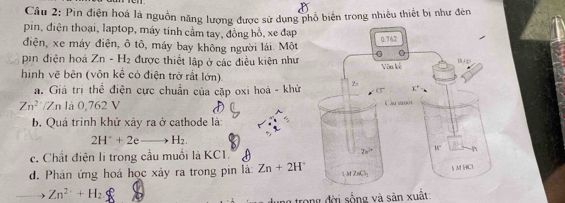 Câu 2: Pin điện hoá là nguồn năng lượng được sử dụng phổ biến trong nhiều thiết bị như đèn
pin, điện thoại, laptop, máy tính cầm tay, đồng hồ, xe đạp
điện, xe máy điện, ô tô, máy bay không người lái. Một
pin điện hoá Zn - H₂ được thiết lập ở các điều kiện như
hình vẽ bên (vôn kế có điện trở rất lớn).
a. Giá trị thế điện cực chuẩn của cặp oxi hoá - khử
Zn²⁺/Zn là 0,762 V
b. Quá trình khử xảy ra ở cathode là:
2H⁺ + 2e ⟶ H₂.
c. Chất điện li trong cầu muối là KCl.
d. Phản ứng hoá học xảy ra trong pin là: Zn + 2H⁺
⟶ Zn²⁺ + H₂
Đ
Đ S
S
Đ
S
0.762
Vôn kế
H₂(g)
Zn
Cl⁻
K⁺
Cầu muối
Zn²⁺
H⁺
Pt
1 M ZnCl₂
1 M HCl
dụng trong đời sống và sản xuất: